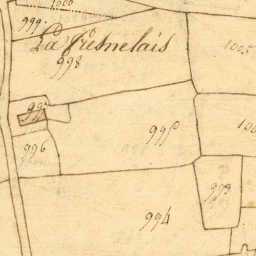 1000
999.
La Fresnelais
998
1005
997
995
996
993
994